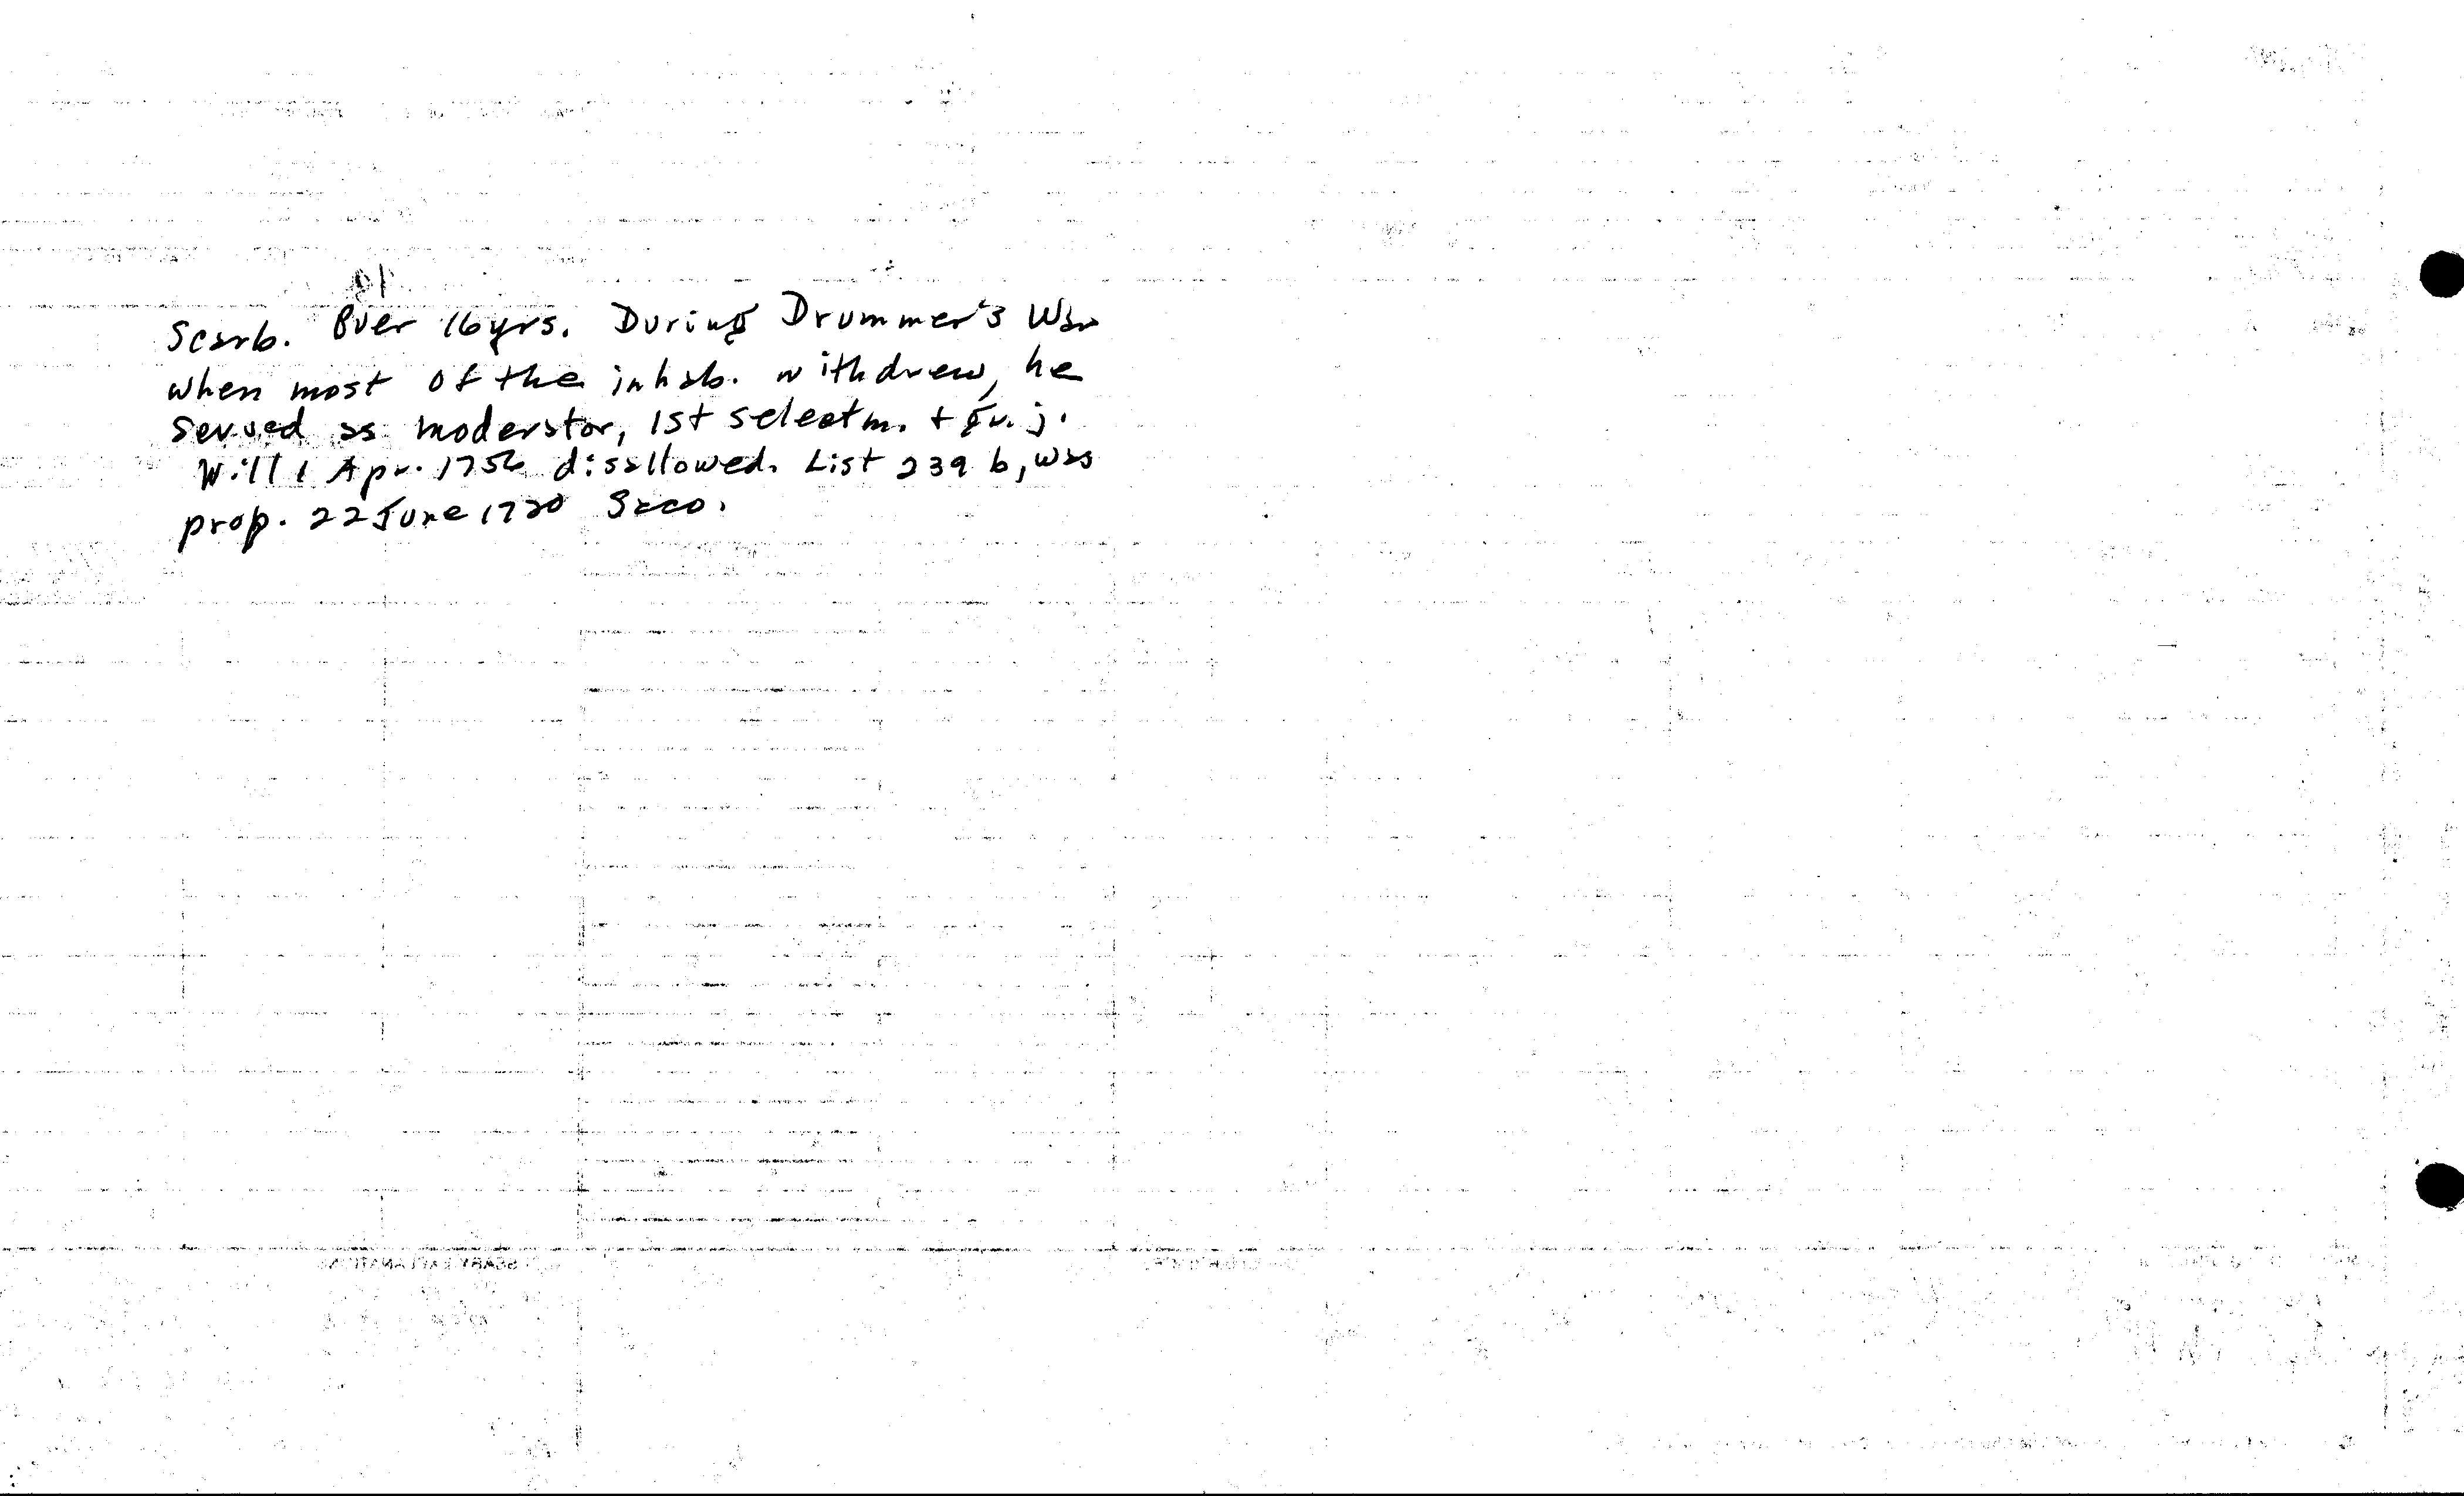 Scarb. Over 16 yrs. During Drummer's War
when most of the inhab. withdrew, he
served as moderator, 1st selectm. + gr. j.
Will 1 Apr. 1756 disallowed. List 239 b, was
prop. 22 June 1720 Saco.